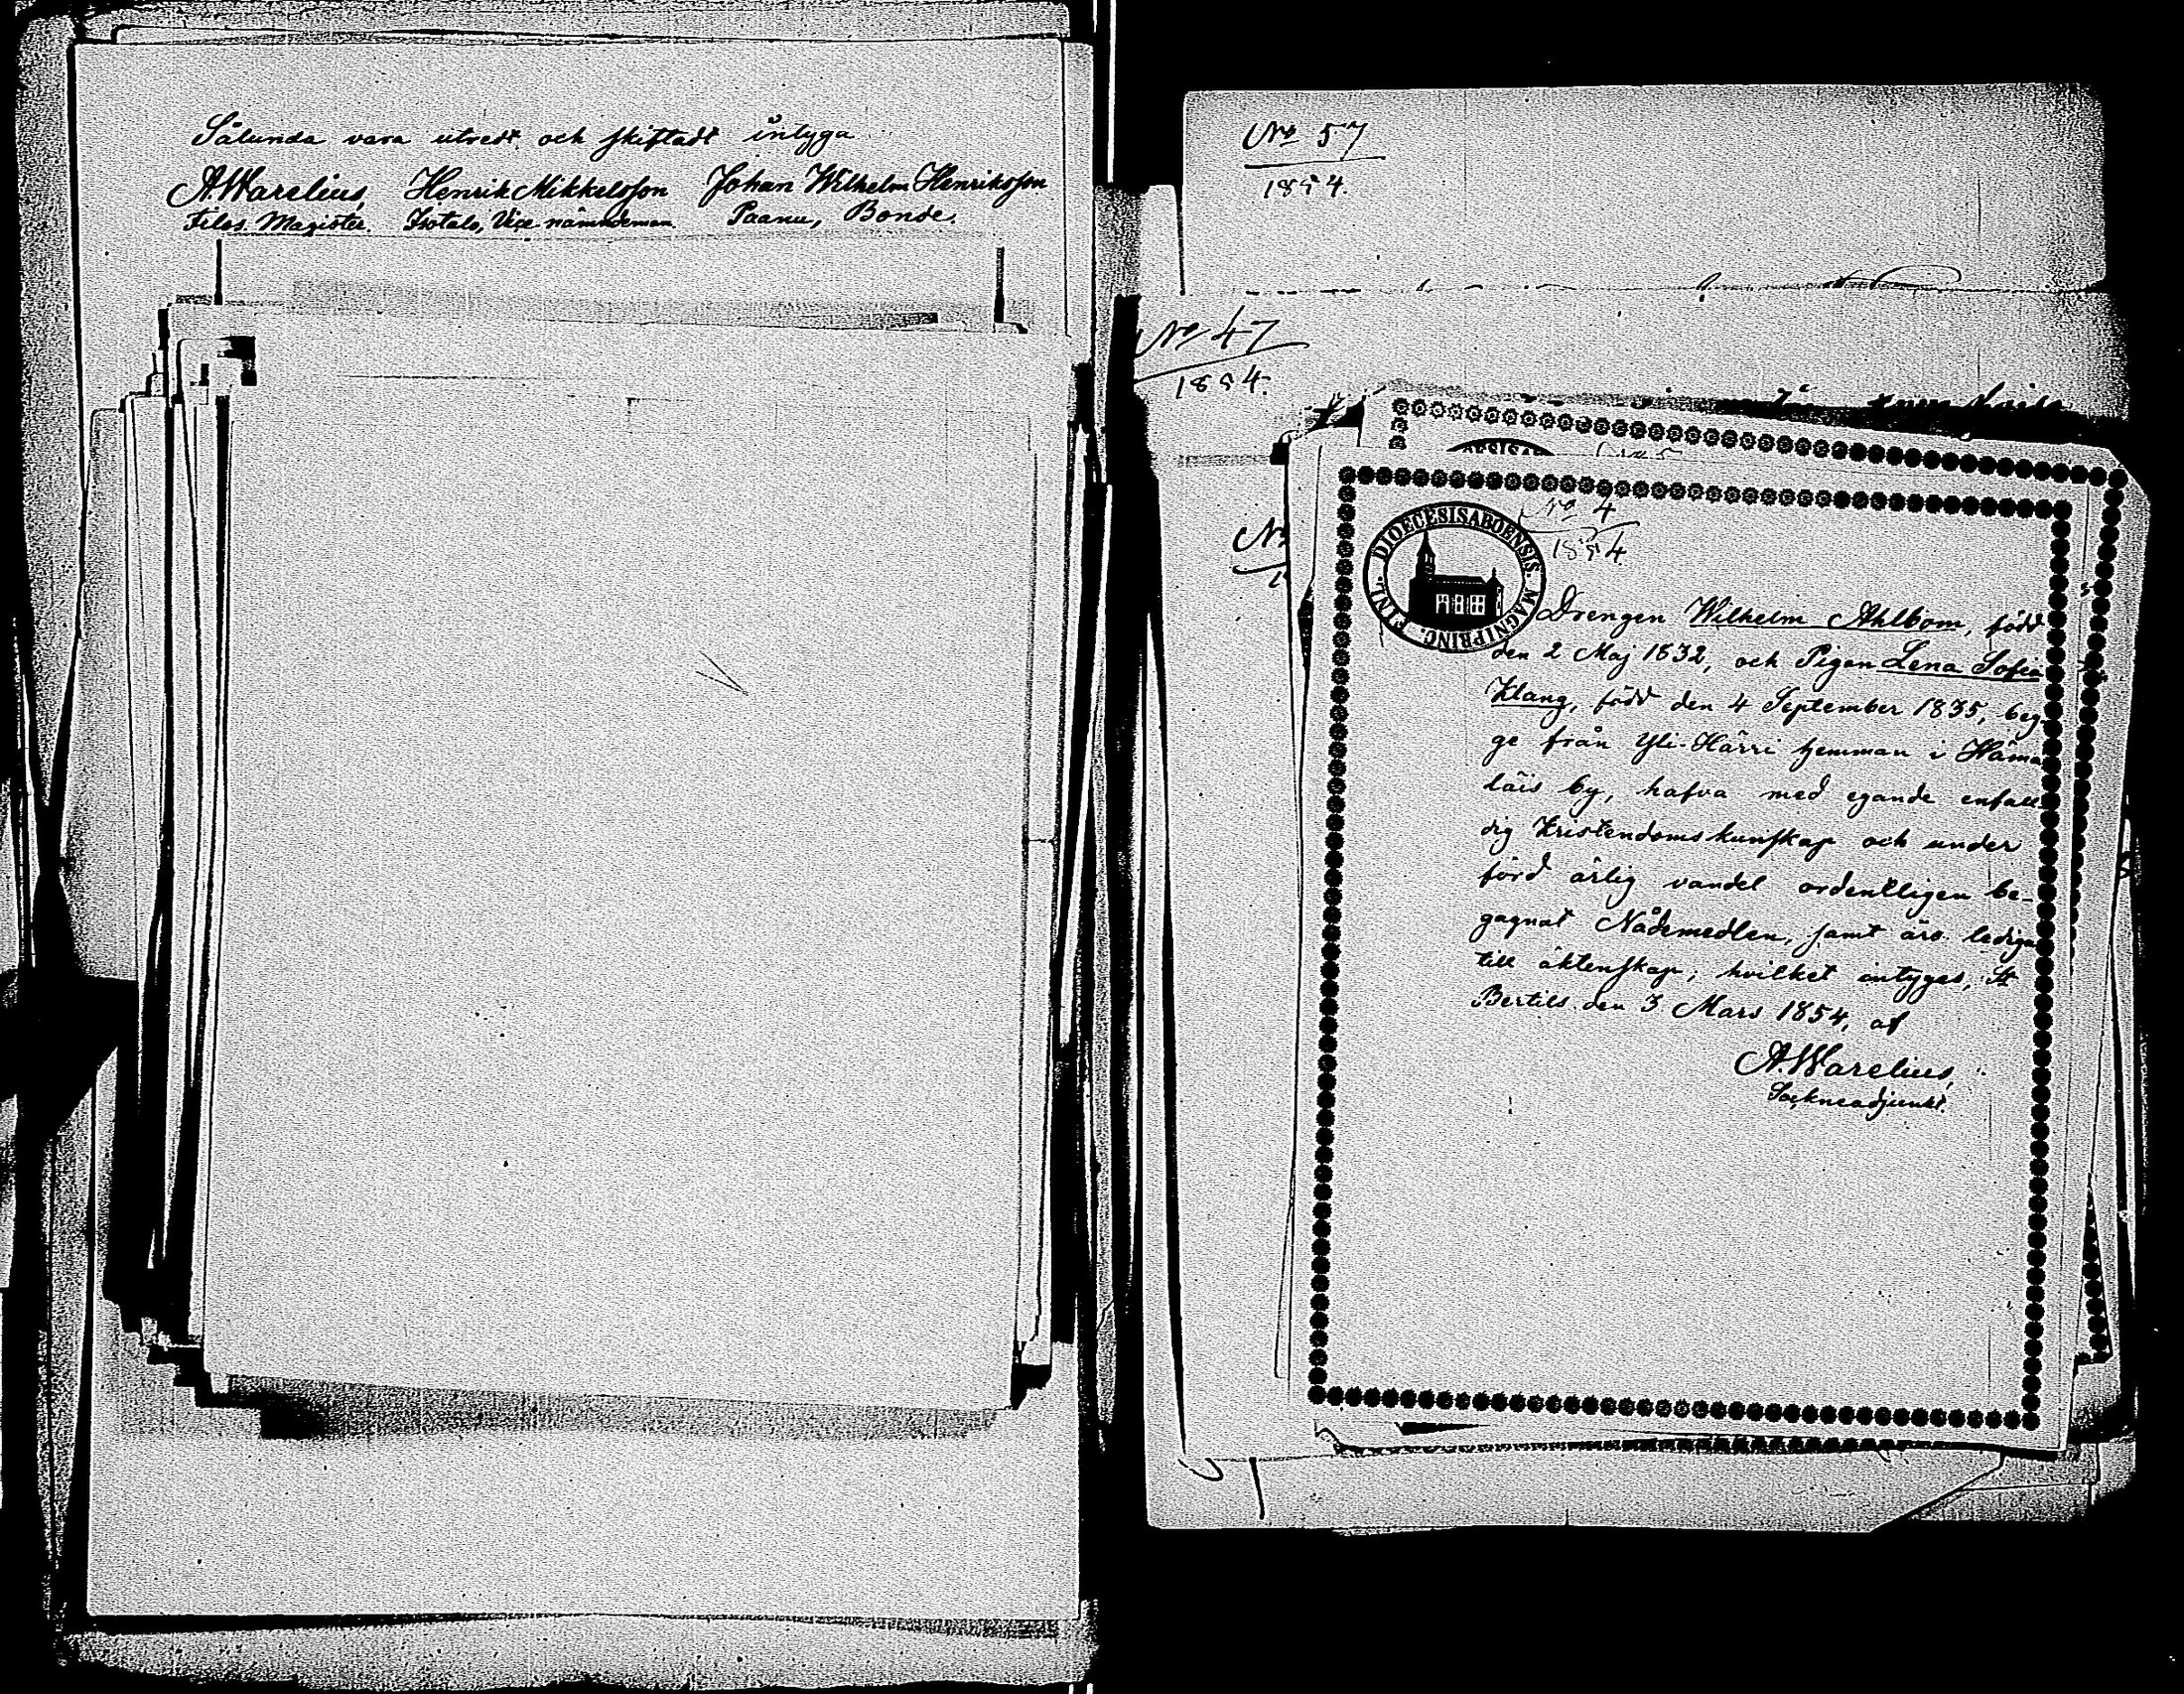 Sålunda vara utredt och skiftadt intyga
A. Warelius, Henrik Mikkelsson Johan Wilhelm Henriksson
Filos. Magister. Isotalo, Vice nämndeman. Paanu, Bonde.
No 57
1854.
No 47
1854.
No 4
1854.
DIOECESIS ABOENSIS. MAGNI PRINC. FINL.
Drengen Wilhelm Ahlbom, född
den 2 Maj 1832, och Pigan Lena Sofia
Klang, född den 4 September 1835, beg-
ge från Yli-Härri hemman i Häma
läis by, hafva med egande enfall
dig Kristendomskunskap och under
förd ärlig vandel ordentligen be-
gagnat Nådemedlen, samt äro lediga
till äktenskap; hvilket intygas, St
Bertils den 3 Mars 1854, af
A. Warelius,
Sockneadjunkt.